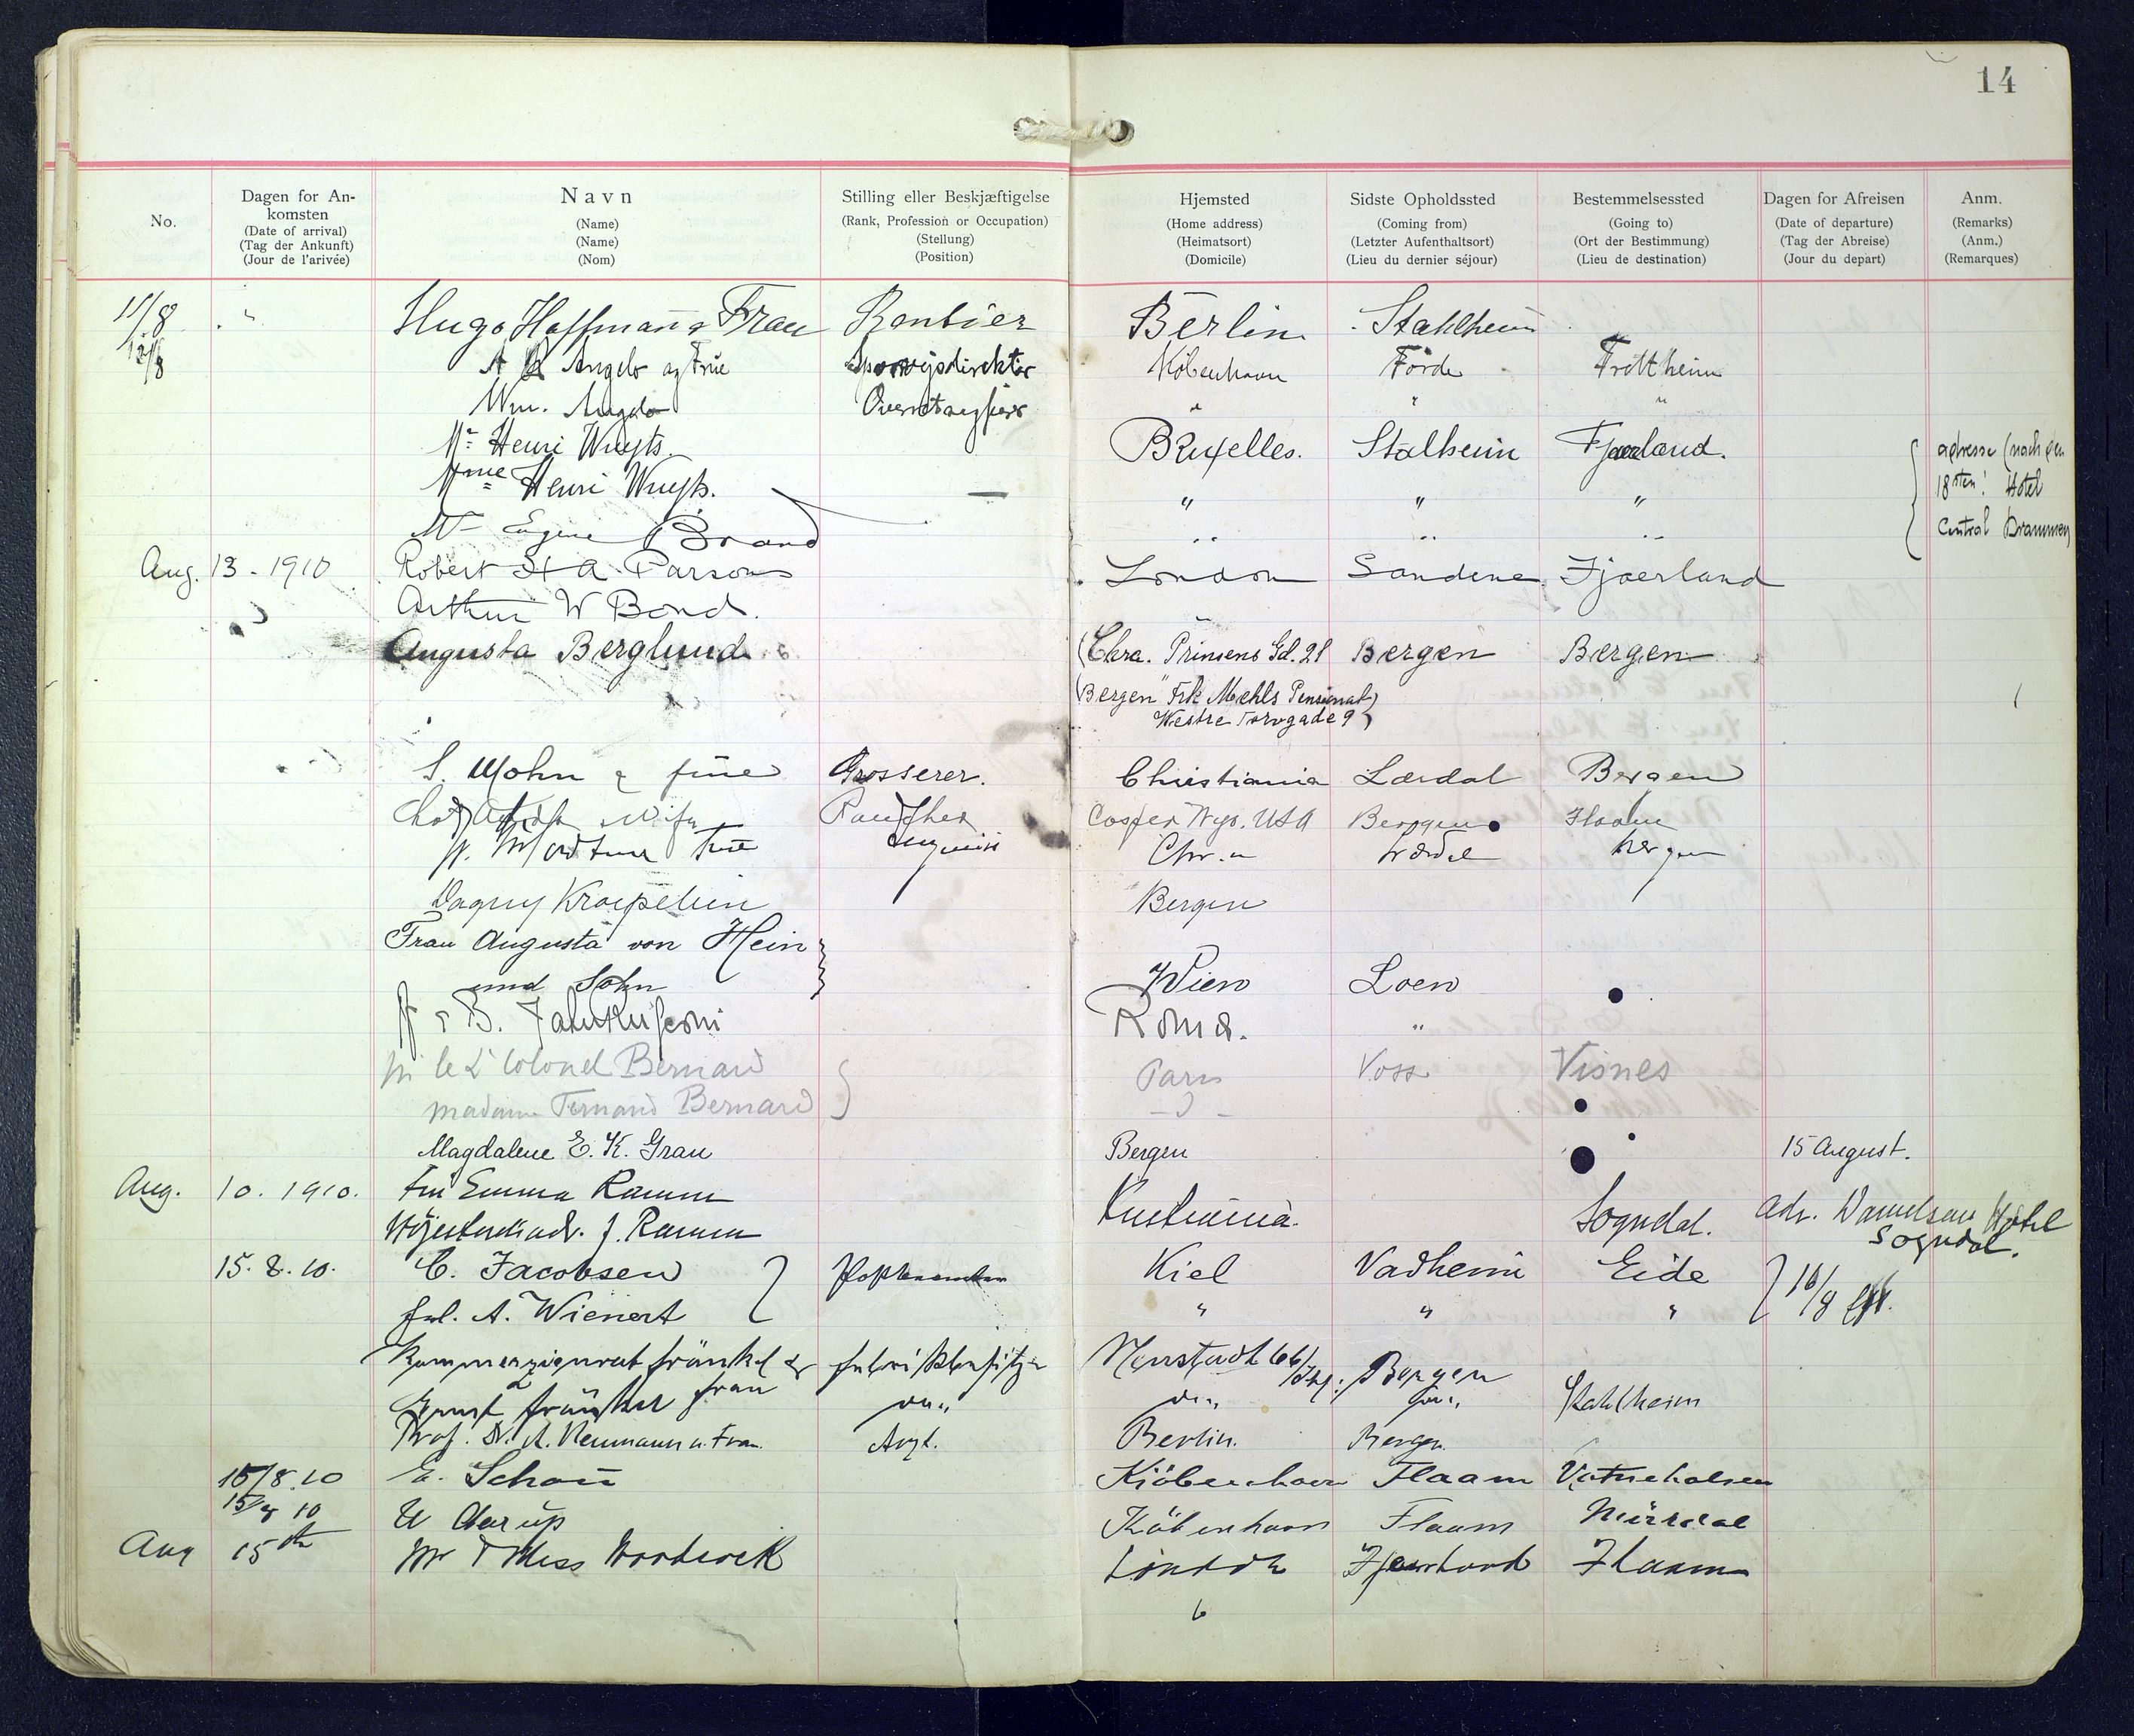 14
No.
Dagen for An-
komsten
(Date of arrival)
(Tag der Ankunft)
(Jour de l'arivée)
Navn
(Name)
(Name)
(Nom)
Stilling eller Beskjæftigelse
(Rank, Profession or Occupation)
(Stellung)
(Position)
Hjemsted
(Home address)
(Heimatsort)
(Domicile)
Sidste Opholdssted
(Coming from)
(Letzter Aufenthaltsort)
(Lieu du dernier séjour)
Bestemmelsessted
(Going to)
(Ort der Bestimmung)
(Lieu de destination)
Dagen for Afreisen
(Date of departure)
(Tag der Abreise)
(Jour du depart)
Anm.
(Remarks)
(Anm.)
(Remarques)
11/8 Hugo Hoffmann & Frau Rentier Berlin Stahlheim
12/8 Angelo og Frue Sporvejsdirektør København Förde
Wm. Angelo " " "
Mr Henri Wuyts. Bruxelles. Stalheim Fjaerland. adresse (nach den
Mme Henri Wuyts. — " " " 18ten! Hotel
Mr Eugene Brand " " " Central Drammen
Aug. 13 - 1910 Robert H A Parsons London Sandene Fjaerland
Arthur W Bond.
Augusta Berglund (Chra. Prinsens Gd. 21 Bergen Bergen
(Bergen Frk Mæhls Pensionat)
Westre Torvgade 9)
S. Mohn & frue Grosserer. Christiania Lærdal Bergen
Wife Rancher Casper Wyo. USA Bergen Flaam
Frue Chr.a Lærdal Bergen
Dagny Kraepelien Bergen
Frau Augusta von Hein
und Sohn Wien Loen
Roma. "
M le Lt Colonel Bernard Paris Voss Visnes
madame Fernand Bernard
Magdalene E. K. Grau Bergen 15 August.
Aug. 10. 1910. Fru Emma Ramm Kristiania. Sogndal. adr. Danielsens Hotel
J. Ramm Sogndal.
15. 8. 10. C. Jacobsen Kiel Vadheim Eide 16/8
Frl. A. Wienert " " "
Kommerzienrat Fränkel Fabrikbesitzer Neustadt Bergen
Frau Stahlheim
Prof. Dr. A. Neumann u. Frau. Arzt. Berlin. Bergen.
15/8.10 E. Schou Kjöbenhavn Flaam Vatnehalsen
15/8 10 Aarup Köbenhavn Flaam
Aug 15th Mr & Miss London Fjaerland Flaam